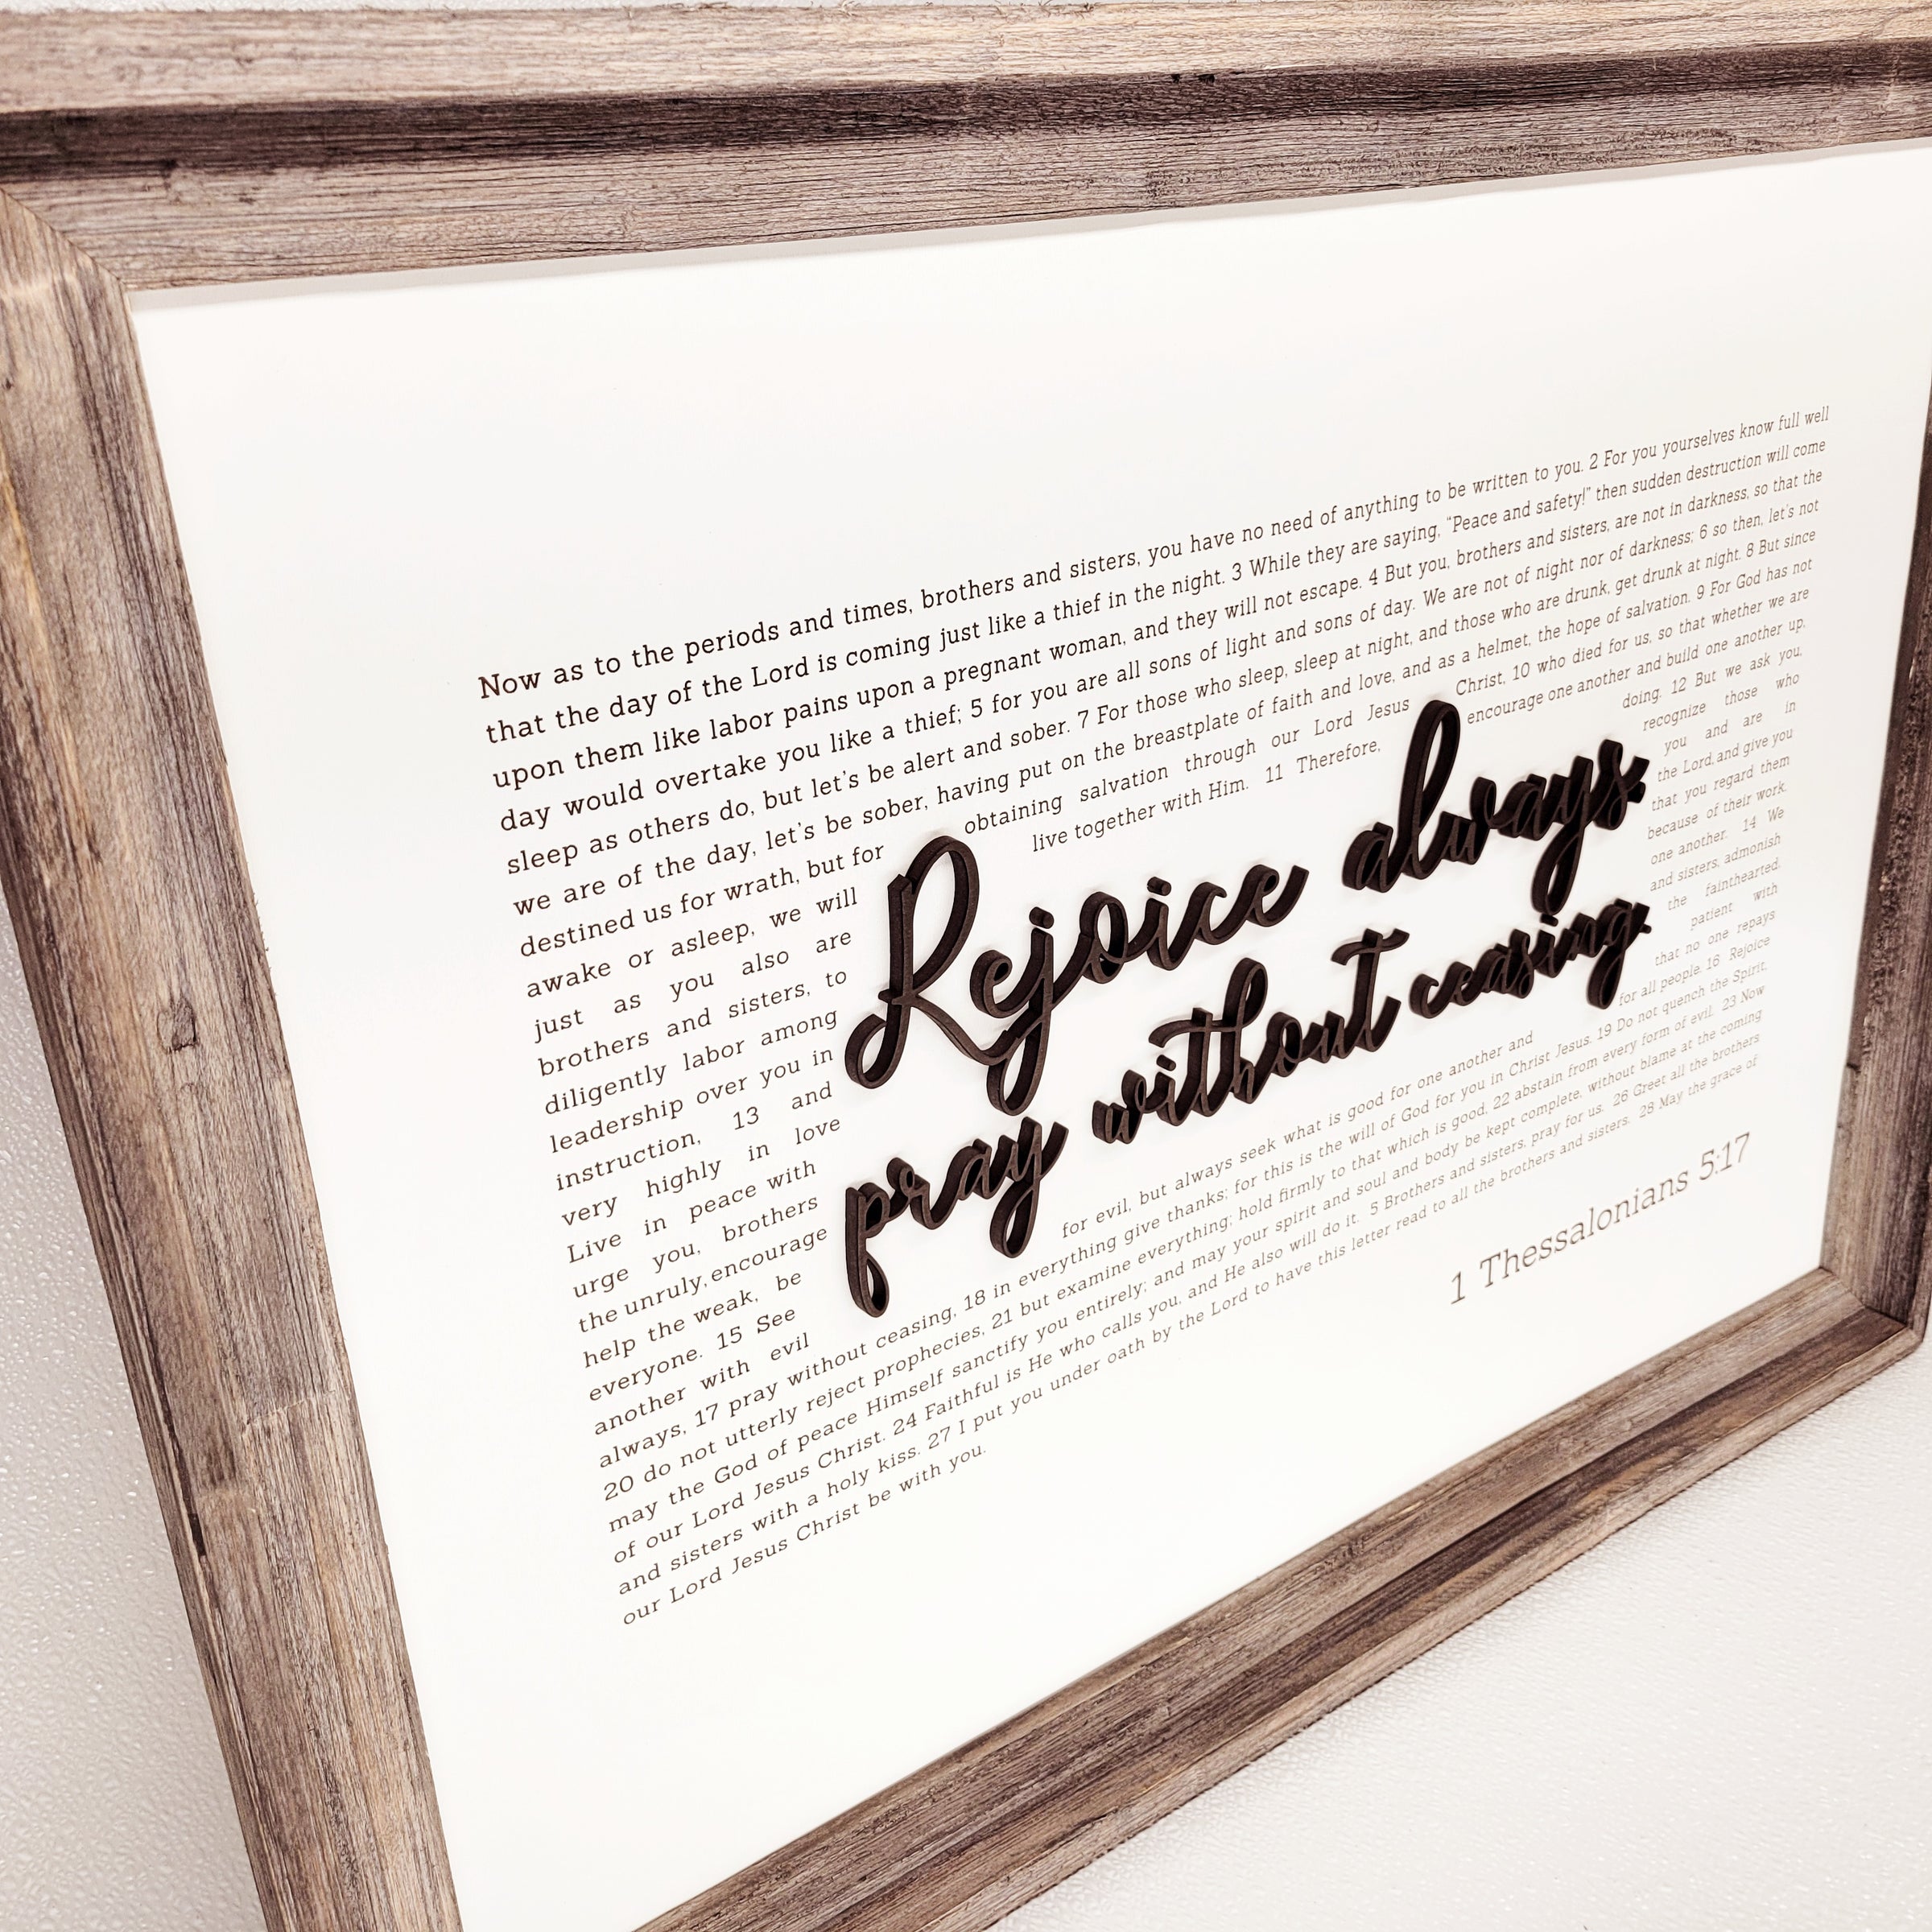 Now as to the periods and times, brothers and sisters, you have no need of anything to be written to you. 2 For you yourselves know full well
that the day of the Lord is coming just like a thief in the night. 3 While they are saying, “Peace and safety!” then sudden destruction will come
upon them like labor pains upon a pregnant woman, and they will not escape. 4 But you, brothers and sisters, are not in darkness, so that the
day would overtake you like a thief; 5 for you are all sons of light and sons of day. We are not of night nor of darkness; 6 so then, let’s not
sleep as others do, but let’s be alert and sober. 7 For those who sleep, sleep at night, and those who are drunk, get drunk at night. 8 But since
we are of the day, let’s be sober, having put on the breastplate of faith and love, and as a helmet, the hope of salvation. 9 For God has not
destined us for wrath, but for obtaining salvation through our Lord Jesus Christ, 10 who died for us, so that whether we are
awake or asleep, we will live together with Him. 11 Therefore, encourage one another and build one another up,
just as you also are doing. 12 But we ask you,
brothers and sisters, to recognize those who
diligently labor among you and are in
leadership over you in the Lord and give you
instruction, 13 and that you regard them
very highly in love because of their work.
Live in peace with one another. 14 We
urge you, brothers and sisters, admonish
the unruly, encourage the fainthearted,
help the weak, be patient with
everyone. 15 See that no one repays
another with evil for evil, but always seek what is good for one another and for all people. 16 Rejoice
always, 17 pray without ceasing, 18 in everything give thanks; for this is the will of God for you in Christ Jesus. 19 Do not quench the Spirit,
20 do not utterly reject prophecies, 21 but examine everything; hold firmly to that which is good, 22 abstain from every form of evil. 23 Now
may the God of peace Himself sanctify you entirely; and may your spirit and soul and body be kept complete, without blame at the coming
of our Lord Jesus Christ. 24 Faithful is He who calls you, and He also will do it. 5 Brothers and sisters, pray for us. 26 Greet all the brothers
and sisters with a holy kiss. 27 I put you under oath by the Lord to have this letter read to all the brothers and sisters. 28 May the grace of
our Lord Jesus Christ be with you.
Rejoice always,
pray without ceasing.
1 Thessalonians 5:17